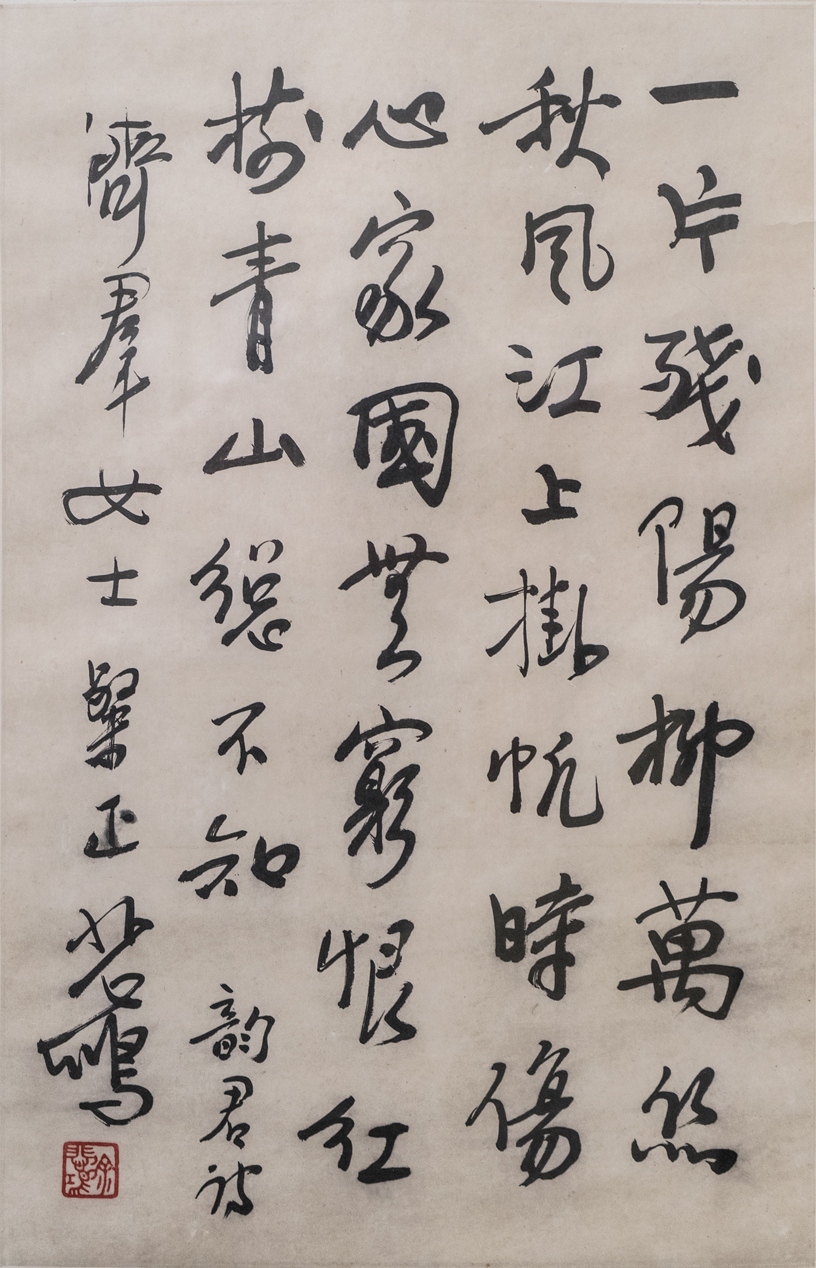 一片殘陽柳萬絲
秋風江上掛帆時傷
心家國無窮恨紅
樹青山總不知 韵君詩
濟羣女士粲正 悲鴻